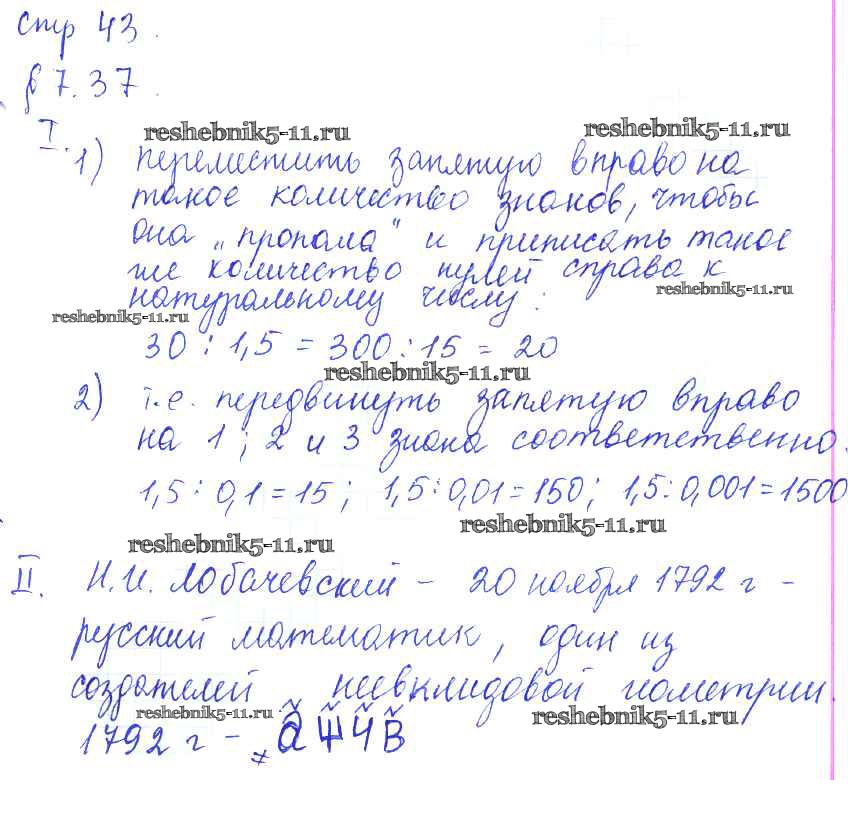 Стр 43.
§ 7.37.
reshebnik5-11.ru reshebnik5-11.ru
I. 1) переместить запятую вправо на
такое количество знаков, чтобы
она „пропала" и приписать такое
же количество нулей справа к
reshebnik5-11.ru
натуральному числу:
reshebnik5-11.ru
30 : 1,5 = 300 : 15 = 20
reshebnik5-11.ru
2) т.е. передвинуть запятую вправо
на 1; 2 и 3 знака соответственно.
1,5 : 0,1 = 15; 1,5 : 0,01 = 150; 1,5 : 0,001 = 1500
reshebnik5-11.ru
reshebnik5-11.ru
II. Н.И. Лобачевский – 20 ноября 1792 г –
русский математик, один из
создателей неевклидовой геометрии.
reshebnik5-11.ru reshebnik5-11.ru
1792 г –